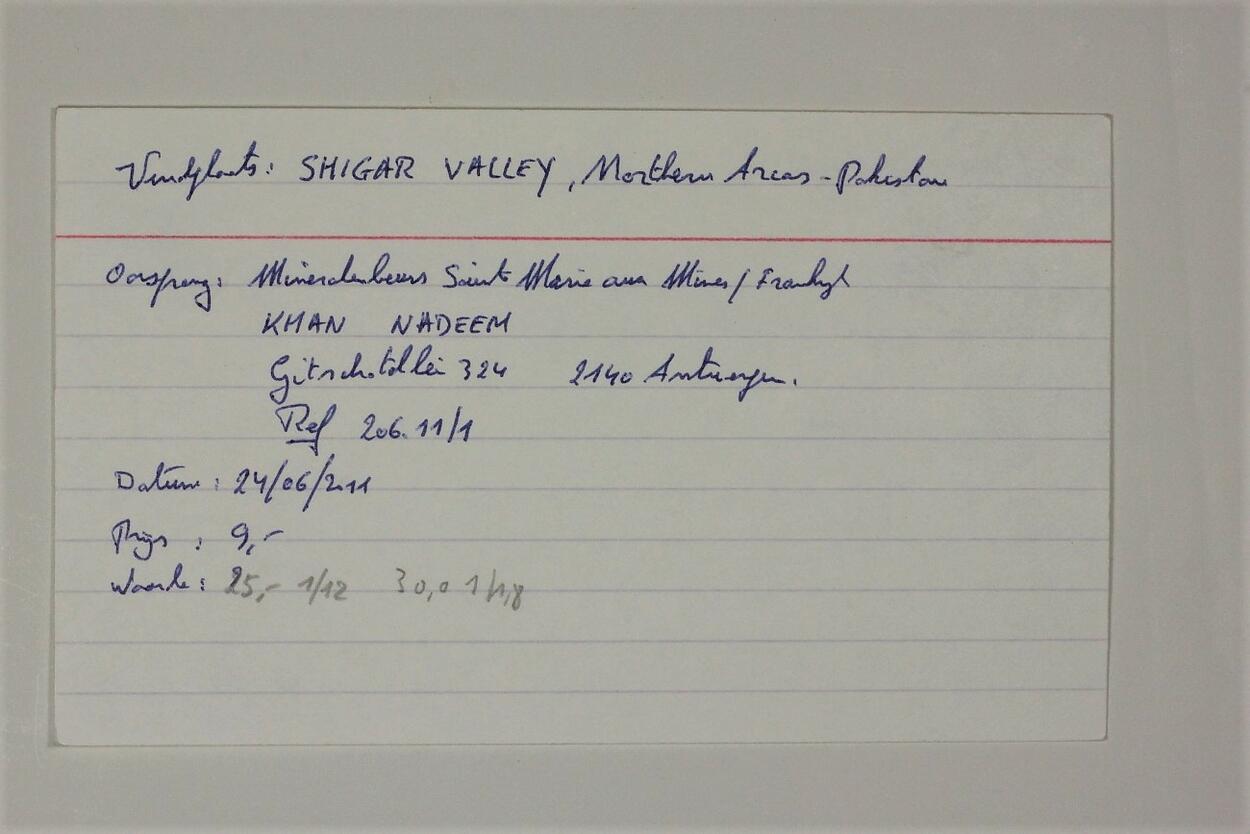 Vindplaats: SHIGAR VALLEY, Northern Areas - Pakistan
Oorsprong: Mineralenbeurs Saint Marie aux Mines / Frankrijk
KHAN NADEEM
Gitschotellei 324 2140 Antwerpen.
Ref 206.11/1
Datum: 24/06/2011
Prijs : 9,-
Waarde: 25,- 1/12 30,0